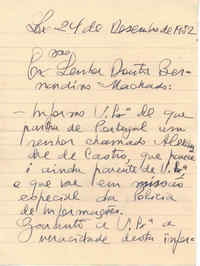 Lx 24 de Dezembro de 1932
Exmo
Senhor Doutor Ber-
nardino Machado:
- Informo V. Exª de que
partiu de Portugal um
senhor chamado Alexan
dre de Castro, que parece
é ainda parente de V. Exª
e que vai em missão
especial da Policia
de Informações.
Garanto a V. Exª a
veracidade desta infor-